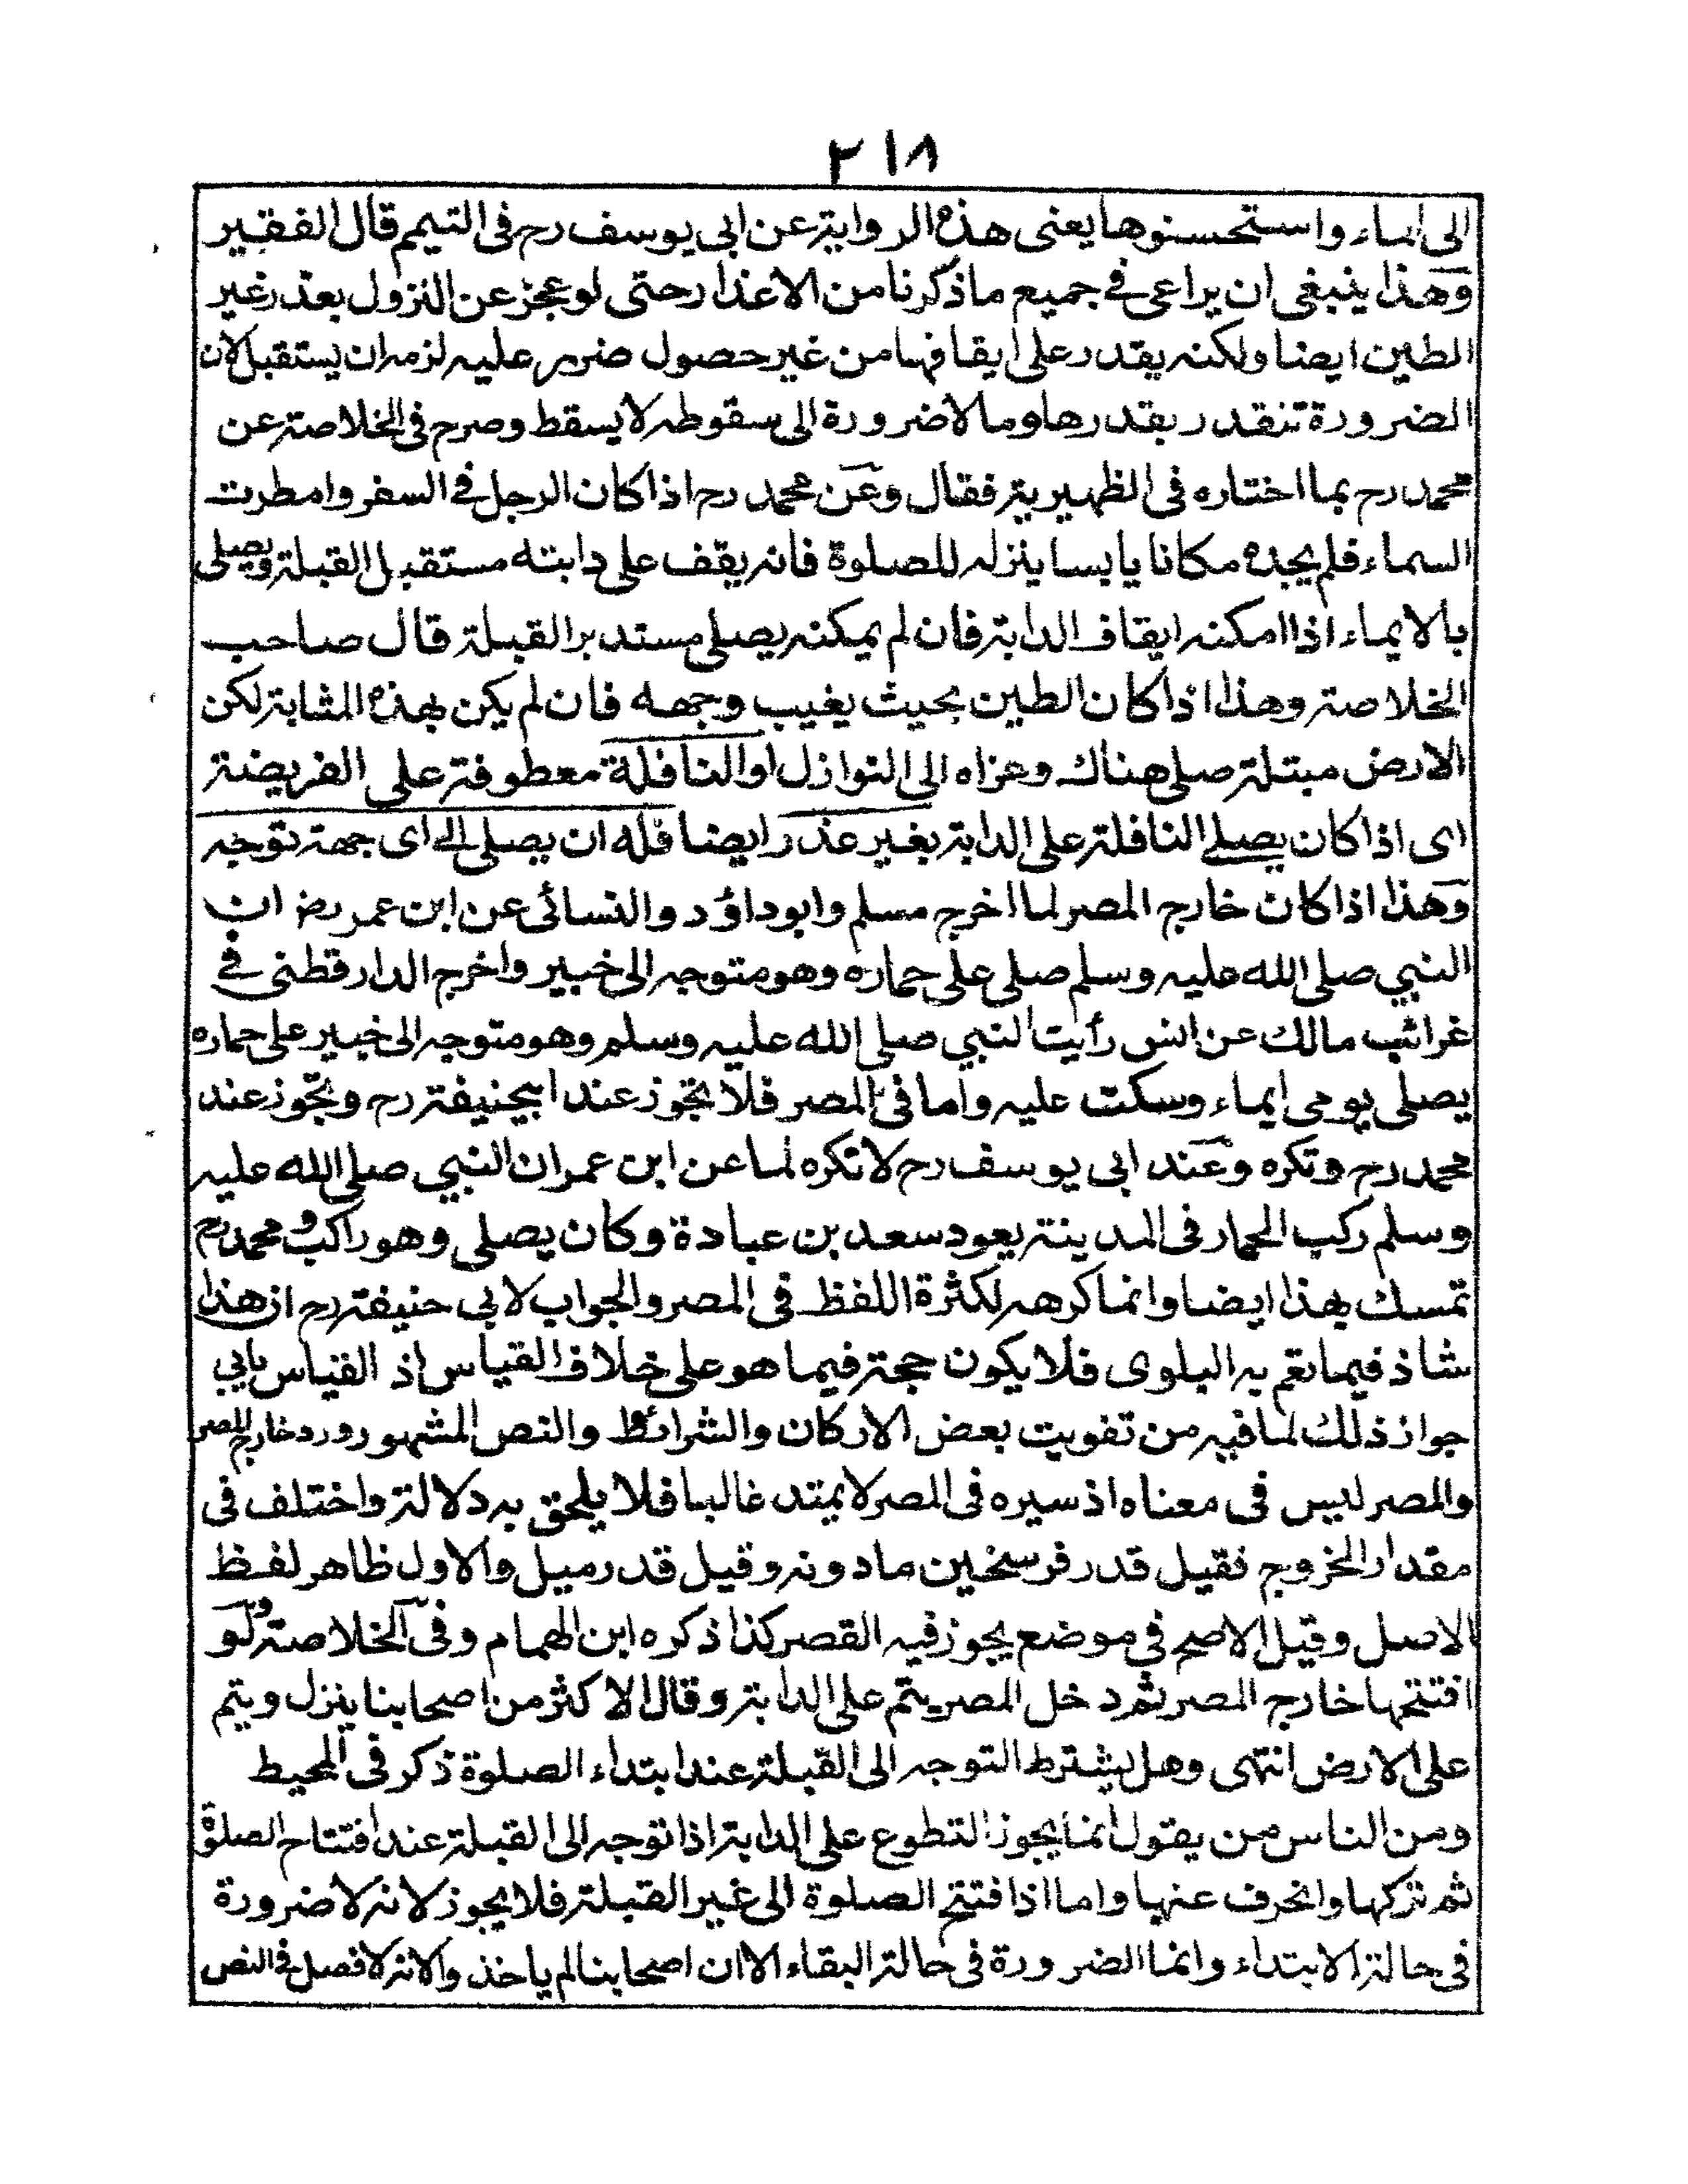 ٢١٨
الى الماء واستحسنوها يعنى هذه الرواية عن ابى يوسف رح فى التيمم قال الفقير
وهذا ينبغى ان يراعى فى جميع ما ذكرنا من الاعذار حتى لو عجز عن النزول بعذر غير
الطين ايضا ولكنه يقدر على ايقافها من غير حصول ضرر عليه لزمه ان يستقبل لان
الضرورة تتقدر بقدرها وما لا ضرورة الى سقوطه لا يسقط وصرح فى الخلاصة عن
محمد رح بما اختاره فى الظهيرية فقال وعن محمد رح اذا كان الرجل فى السفر وامطرت
السماء فلم يجده مكانا يابسا ينزله للصلوة فانه يقف على دابته مستقبل القبلة ويصلى
بالايماء اذا امكنه ايقاف الدابة فان لم يمكنه يصلى مستدبر القبلة قال صاحب
الخلاصة وهذا اذا كان الطين بحيث يغيب وجهه فان لم يكن بهذه المثابة لكن
الارض مبتلة صلى هناك وعزاه الى النوازل او النافلة معطوفة على الفريضة
اى اذا كان يصلى النافلة على الدابة بغير عذر ايضا فله ان يصلى الى اى جهة توجه
وهذا اذا كان خارج المصر لما اخرج مسلم وابو داؤد والنسائى عن ابن عمر رض ان
النبي صلى الله عليه وسلم صلى على حماره وهو متوجه الى خيبر واخرج الدارقطنى فى
غرائب مالك عن انس رأيت النبي صلى الله عليه وسلم وهو متوجه الى خيبر على حماره
يصلى يومى ايماء وسكت عليه واما فى المصر فلا تجوز عند ابيحنيفة رح وتجوز عند
محمد رح وتكره وعند ابى يوسف رح لا تكره لما عن ابن عمر ان النبي صلى الله عليه
وسلم ركب الحمار فى المدينة يعود سعد بن عبادة وكان يصلى وهو راكب ومحمد رح
تمسك بهذا ايضا وانما كرهه لكثرة اللفظ فى المصر والجواب لابى حنيفة رح ان هذا
شاذ فيما تعم به البلوى فلا يكون حجة فيما هو على خلاف القياس اذ القياس يابى
جواز ذلك لما فيه من تفويت بعض الاركان والشرائط والنص المشهور ورد خارج المصر
والمصر ليس فى معناه اذ سيره فى المصر لا يمتد غالبا فلا يلحق به دلالة واختلف فى
مقدار الخروج فقيل قدر فرسخين ما دونه وقيل قدر ميل والاول ظاهر لفظ
الاصل وقيل الاصح فى موضع يجوز فيه القصر كذا ذكره ابن الهمام وفى الخلاصة ولو
افتتحها خارج المصر ثم دخل المصر يتم على الدابة وقال الاكثر من اصحابنا ينزل ويتم
على الارض انتهى وهل يشترط التوجه الى القبلة عند ابتداء الصلوة ذكر فى المحيط
ومن الناس من يقول انما يجوز التطوع على الدابة اذا توجه الى القبلة عند افتتاح الصلوة
ثم تركها وانحرف عنها واما اذا فتتح الصلوة الى غير القبلة فلا يجوز لانه لا ضرورة
فى حالة الابتداء وانما الضرورة فى حالة البقاء الا ان اصحابنا لم ياخذوا لانه لا فصل فى النص